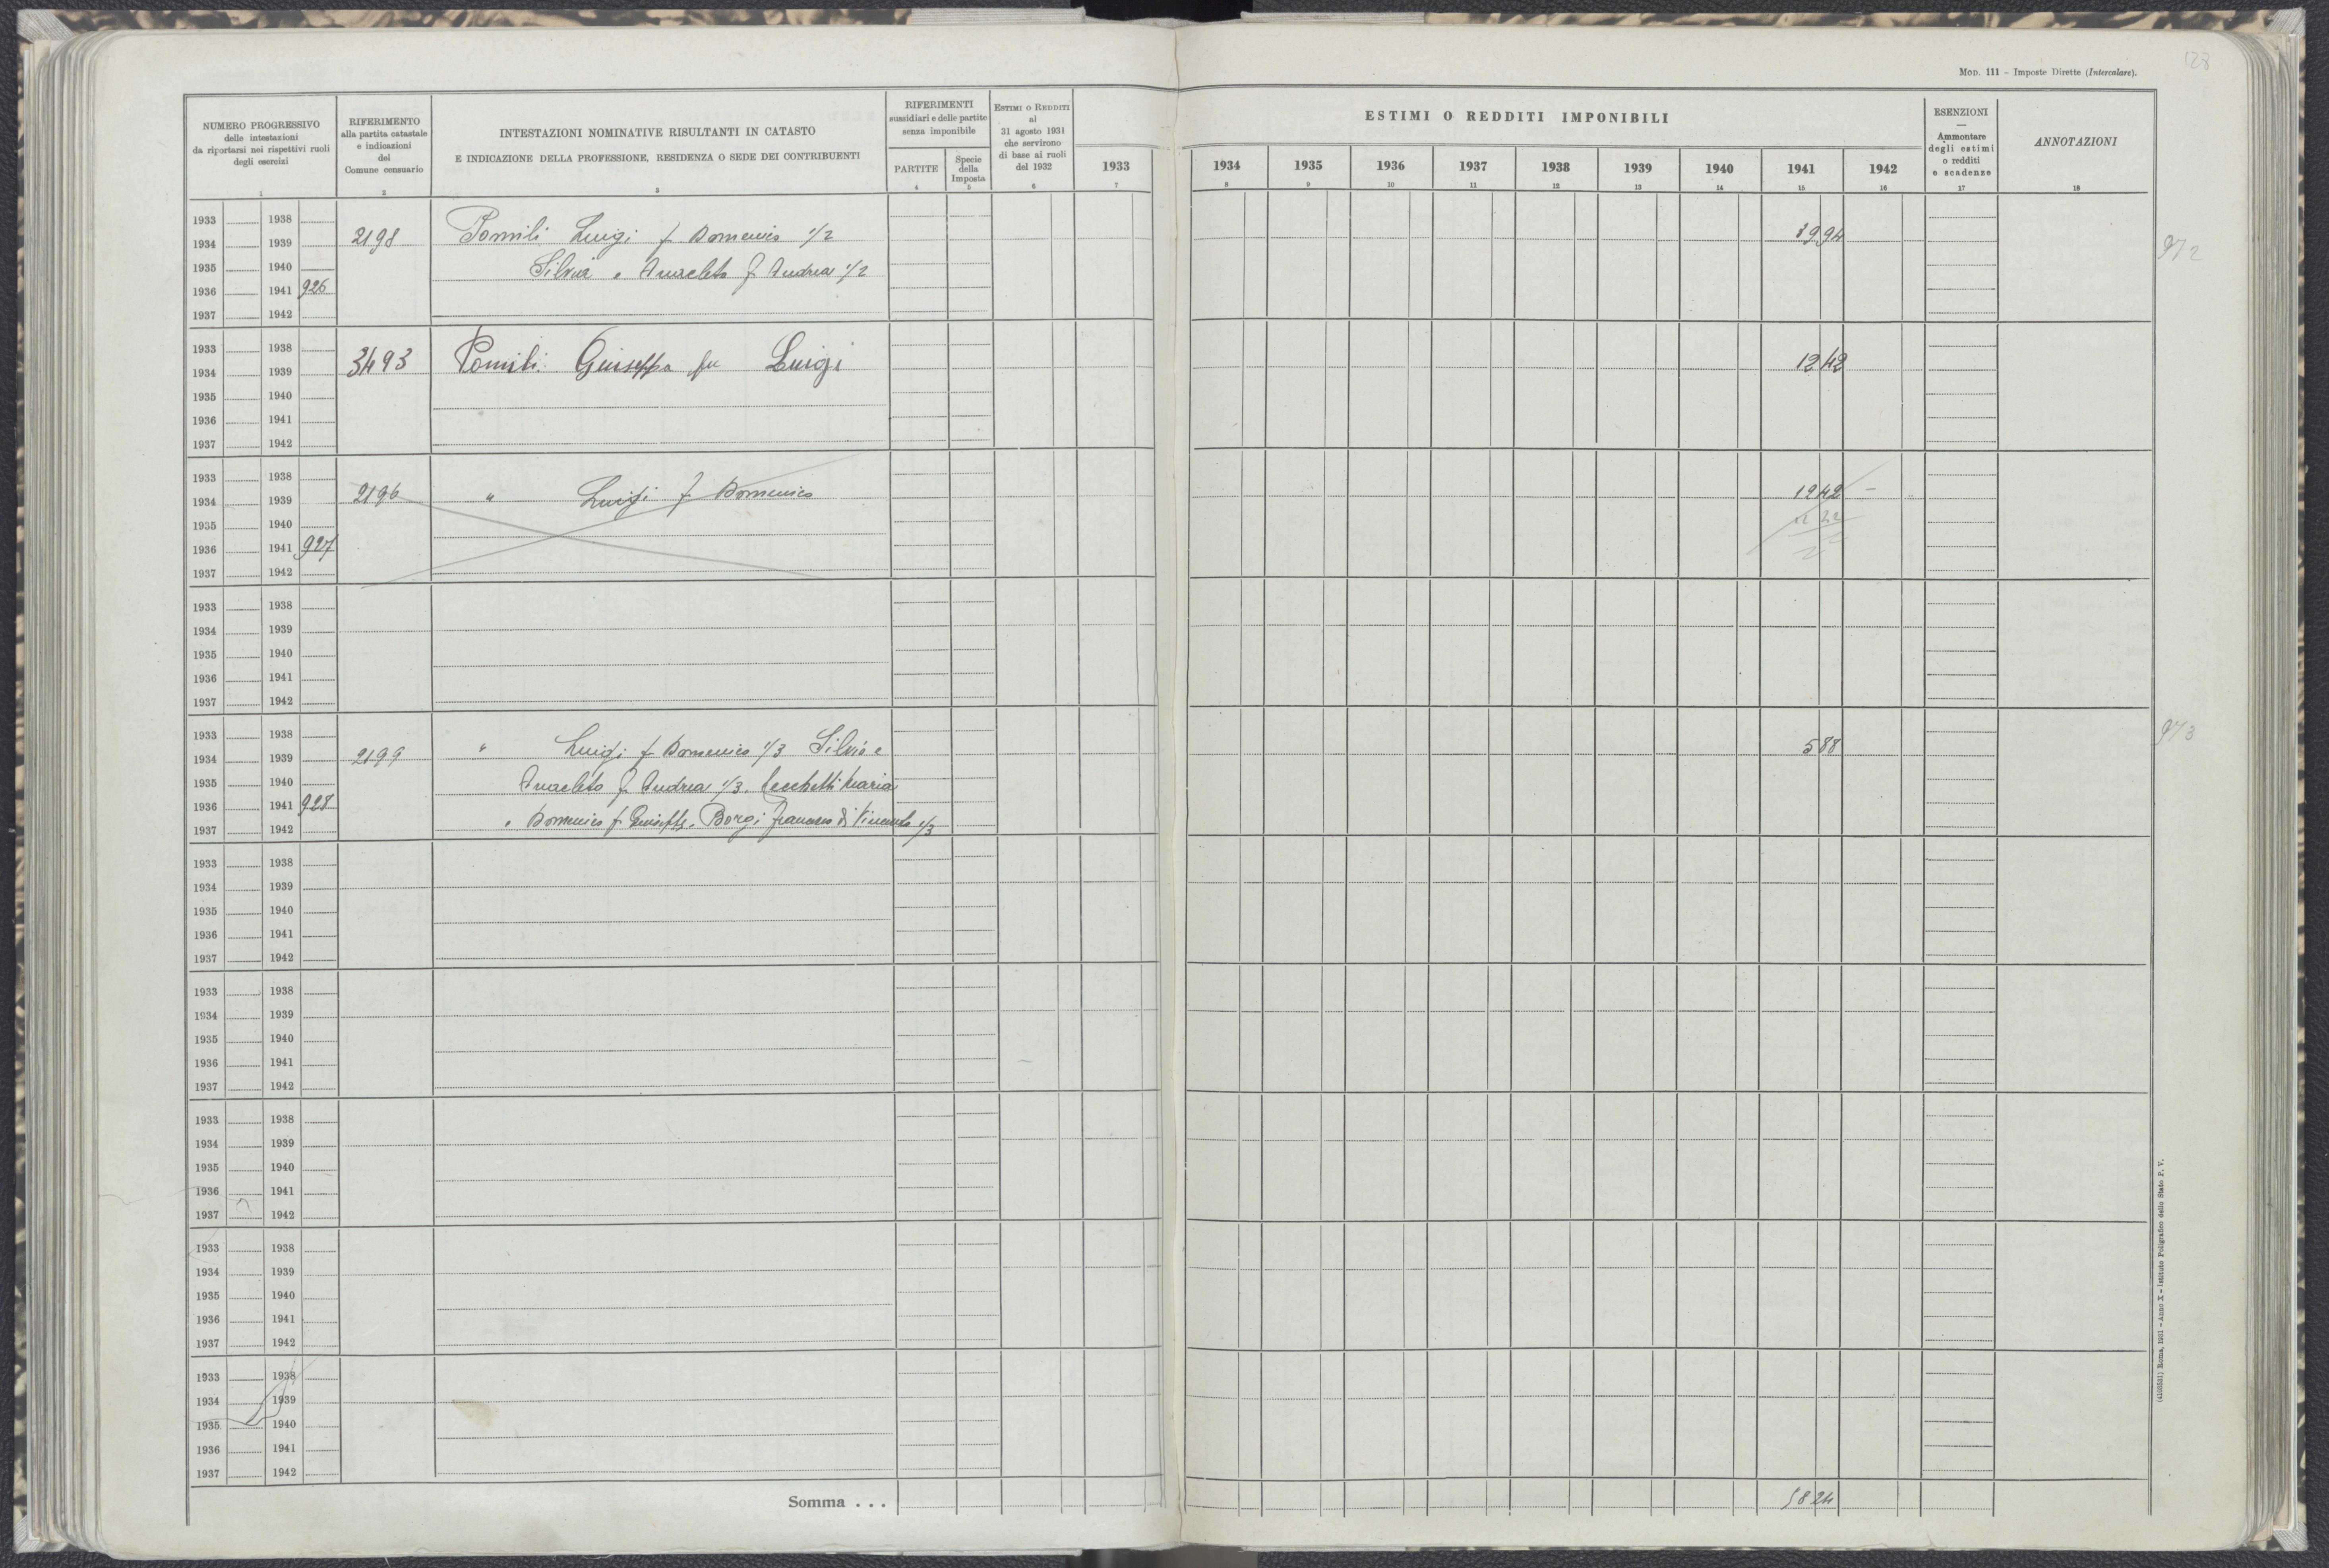 128
MOD. 111 – Imposte Dirette (Intercalare).
NUMERO PROGRESSIVO
delle intestazioni
da riportarsi nei rispettivi ruoli
degli esercizi
1
RIFERIMENTO
alla partita catastale
e indicazioni
del
Comune censuario
2
INTESTAZIONI NOMINATIVE RISULTANTI IN CATASTO
E INDICAZIONE DELLA PROFESSIONE, RESIDENZA O SEDE DEI CONTRIBUENTI
3
RIFERIMENTI
sussidiari e delle partite
senza imponibile
PARTITE
4
Specie
della
Imposta
5
ESTIMI O REDDITI
al
31 agosto 1931
che servirono
di base ai ruoli
del 1932
6
1933
7
ESTIMI O REDDITI IMPONIBILI
1934 1935 1936 1937 1938 1939 1940 1941 1942
8 9 10 11 12 13 14 15 16
ESENZIONI
—
Ammontare
degli estimi
o redditi
e scadenze
17
ANNOTAZIONI
18
1933 1938
1934 1939 2198 Pomili Luigi f Domenico 1/2 1994 972
1935 1940 Silvia e Anacleto f Andrea 1/2
1936 1941 926
1937 1942
1933 1938
1934 1939 3493 Pomili Giuseppa fu Luigi 1242
1935 1940
1936 1941
1937 1942
1933 1938
1934 1939 2196 " Luigi f Domenico 1242 –
1935 1940
1936 1941 927
1937 1942
1933 1938
1934 1939
1935 1940
1936 1941
1937 1942
1933 1938 973
1934 1939 2199 " Luigi f Domenico 1/3 Silvio e 588
1935 1940 Anacleto f Andrea 1/3. Cecchetti Maria
1936 1941 928
1937 1942 e Domenico f Giuseppe. Borgi Francesco di Vincenzo 1/3
1933 1938
1934 1939
1935 1940
1936 1941
1937 1942
1933 1938
1934 1939
1935 1940
1936 1941
1937 1942
1933 1938
1934 1939
1935 1940
1936 1941
1937 1942
1933 1938
1934 1939
1935 1940
1936 1941
1937 1942
1933 1938
1934 1939
1935 1940
1936 1941
1937 1942
Somma . . . 5824
(4103531) Roma, 1931 – Anno X – Istituto Poligrafico dello Stato P. V.